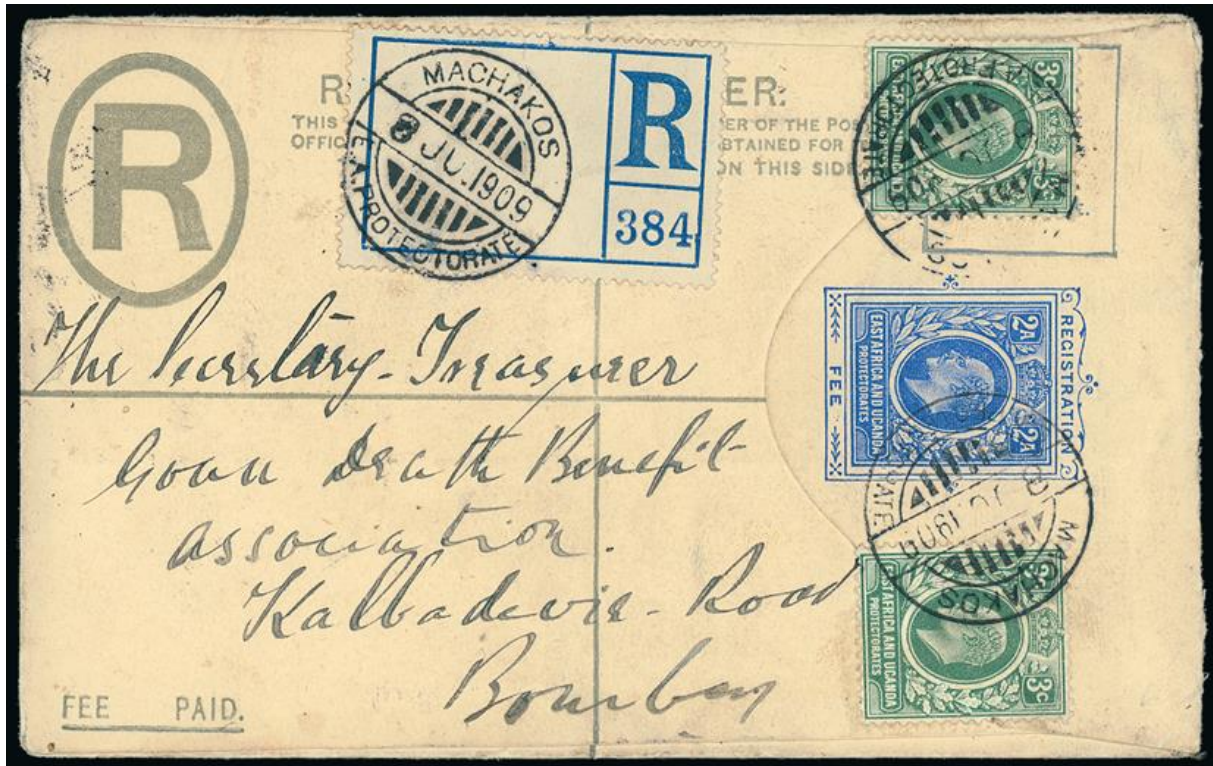 R
R
ER.
THIS
ER OF THE POS
OFFIC
BTAINED FOR
ON THIS SIDE
MACHAKOS
8 JU.1909
E.A. PROTECTORATE
R
384
3c
3c
2A
2A
EAST AFRICA AND UGANDA
PROTECTORATES
REGISTRATION
FEE
MACHAKOS
8 JU 1909
3c
EAST AFRICA AND UGANDA
PROTECTORATES
The Secretary-Treasurer
Goan Death Benefit
association.
Kalbadevie-Road
Bombay
FEE PAID.